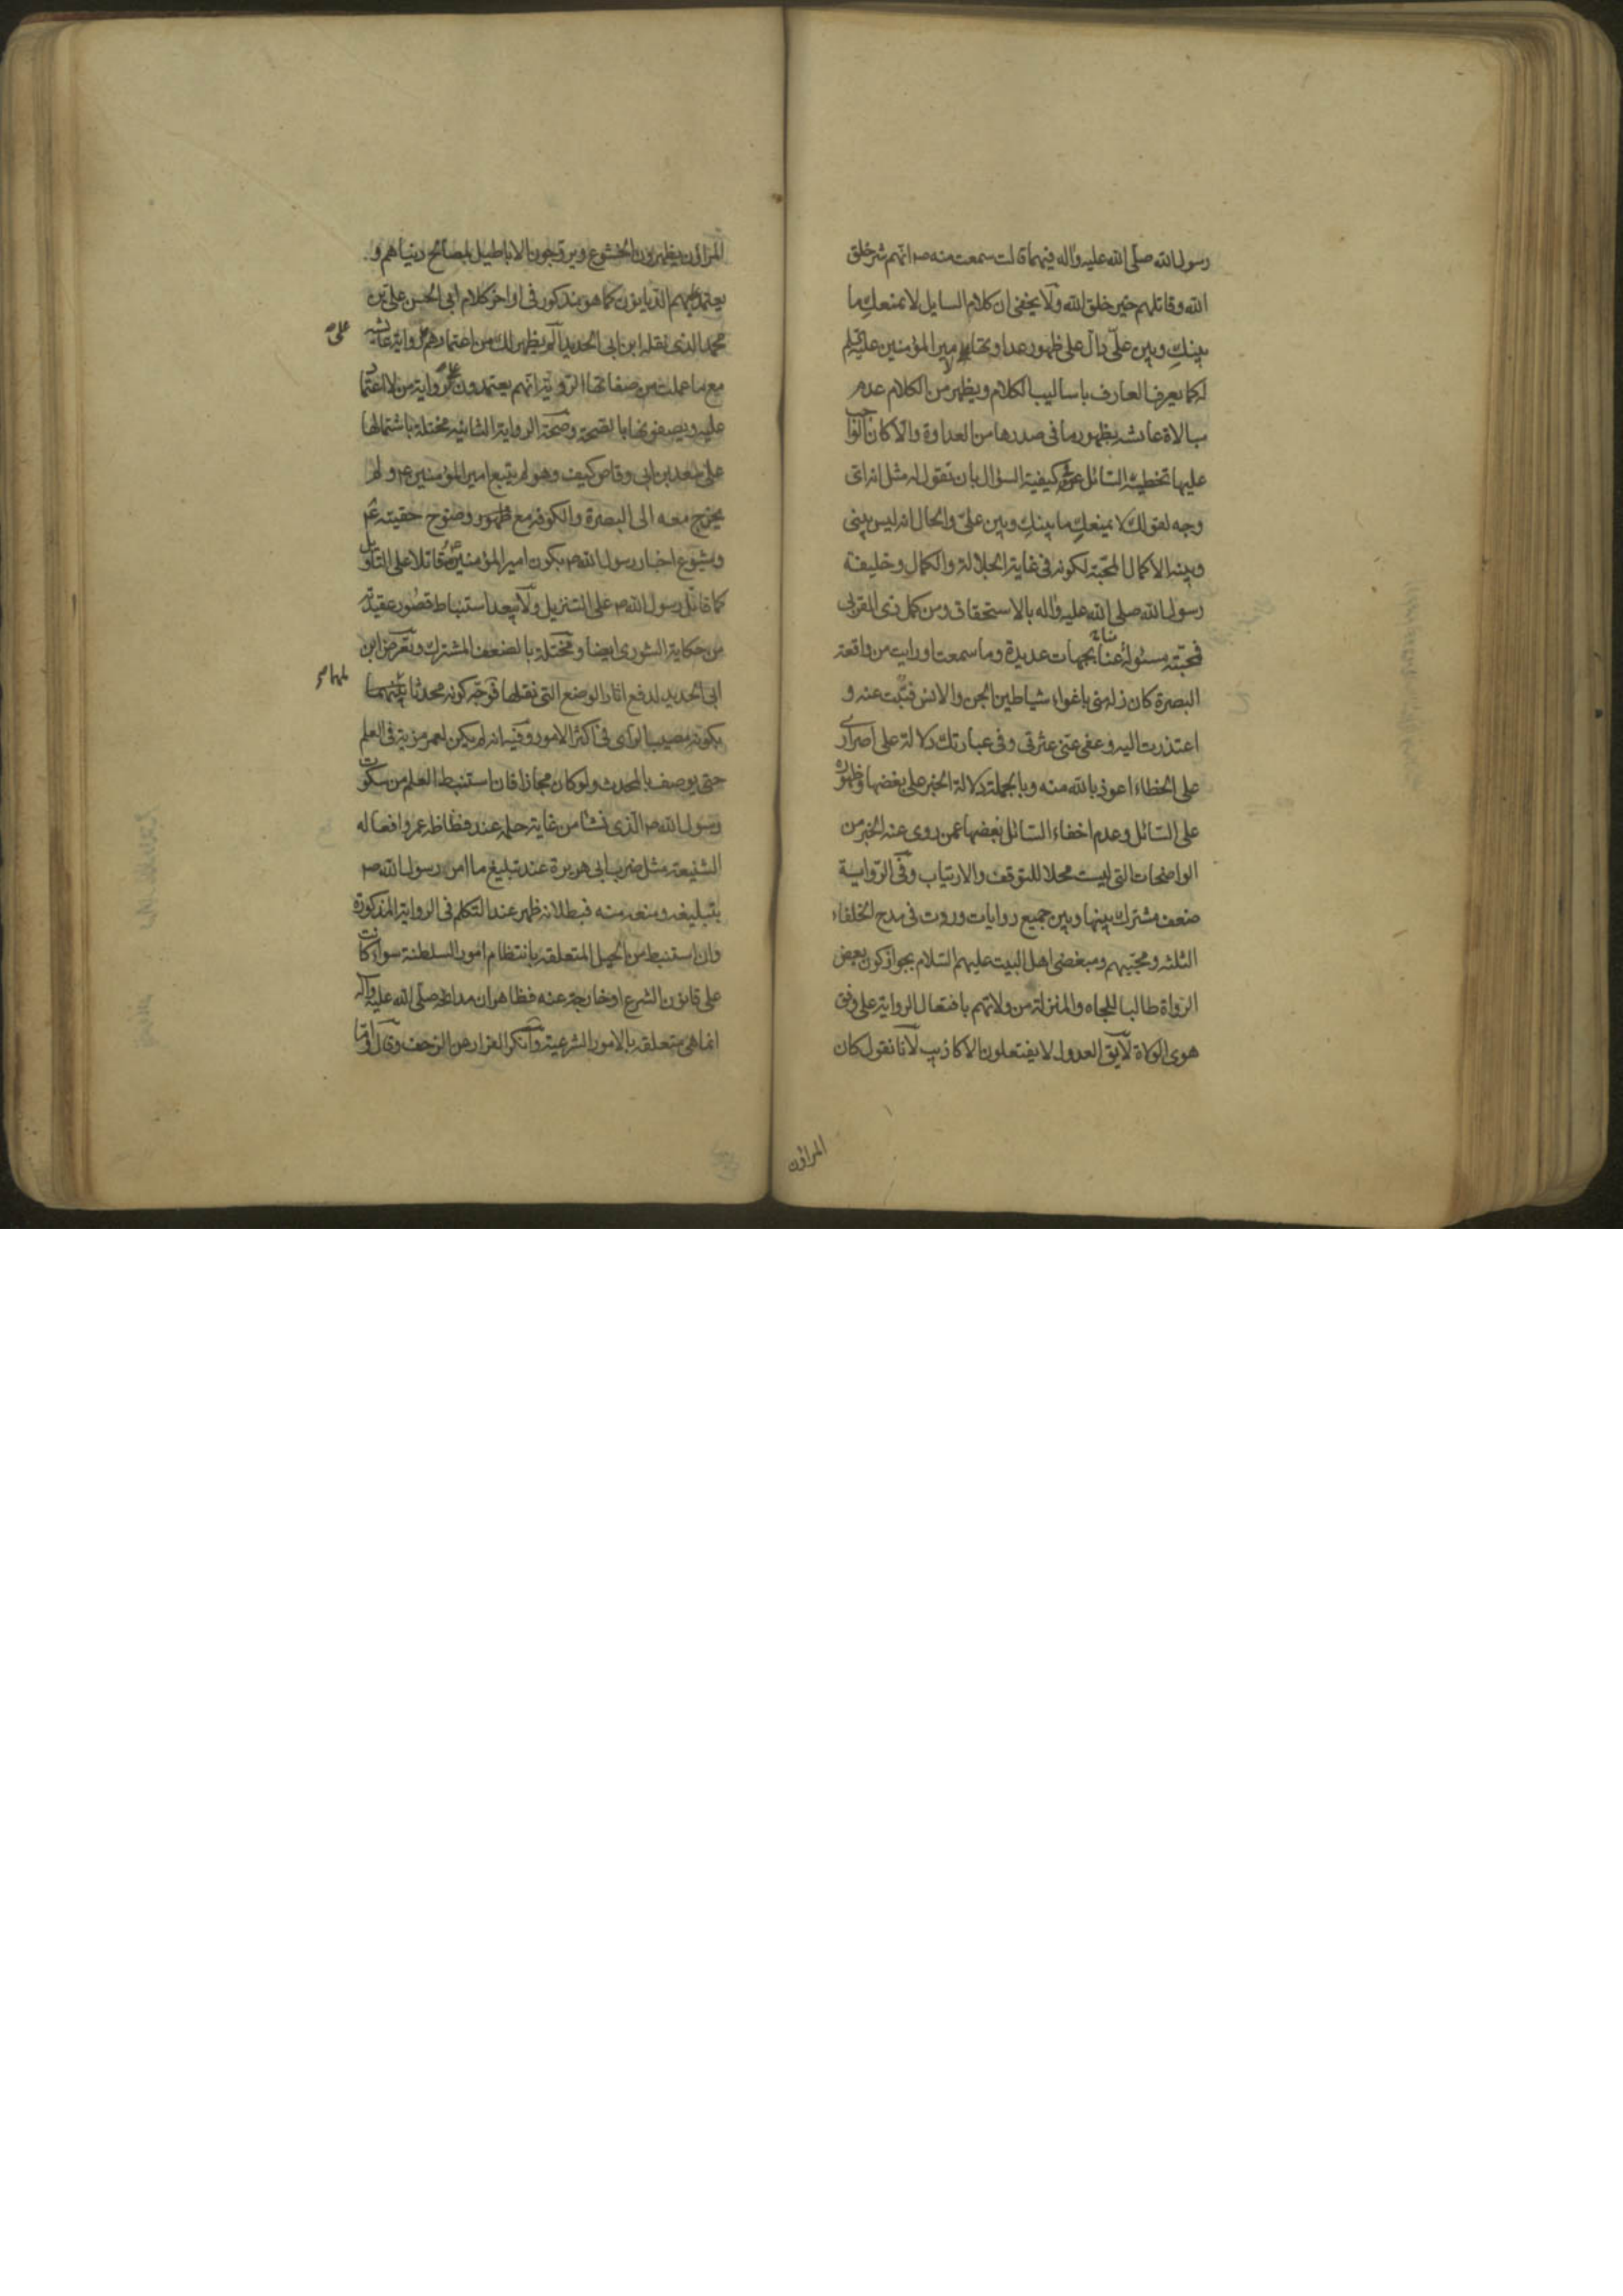 رسول الله صلى الله عليه واله فيهم قالت سمعت منه ص انهم شر خلق
الله وقاتلهم خير خلق الله ولا يخفى ان كلام السايل لا يمنعك ما
بينك وبين علي دال على ظهور عداوتها امير المؤمنين عليه السلام
له كما يعرف العارف باساليب الكلام ويظهر من الكلام عدم
مبالاة عايشه بظهور ما في صدرها من العداوة والا كان
عليها تخطية السائل كيفية السؤال بان تقول له مثل انه اى
وجه لقولك لا يمنعك ما بينك وبين علي والحال انه ليس بيني
وبينه الا كمال المحبة لكونه في غاية الجلالة والكمال وخليفة
رسول الله صلى الله عليه واله بالاستحقاق ومن كمل ذى القربى
فمحبته مسئولة عنا بجهات عديدة وما سمعت او رايت من واقعة
البصرة كان زلة مني باغواء شياطين الجن والانس فتبت عنه و
اعتذرت اليه وعفى عني عثرتي وفي عبارتك دلالة على اصرارى
على الخطاء اعوذ بالله منه وبالجملة دلالة الخبر على بغضها وظهوره
على السائل وعدم اخفاء السائل بغضها عمن روى عنه الخبر من
الواضحات التي ليست محلا للتوقف والارتياب وفي الرواية
ضعف مشترك بينها وبين جميع روايات وردت في مدح الخلفاء
الثلثه ومحبيهم ومبغضى اهل البيت عليهم السلام بجواز كون بعض
الرواة طالبا للجاه والمنزلة من ولاتهم بافتعال الرواية على وفق
هوى الولاة لا يق العدول لا يفتعلون الاكاذيب لانا نقول كان
المراؤن
المراؤن يظهرون الخشوع ويروجون الاباطيل لمصالح دنياهم و
يعتمد عليهم الديانون كما هو مذكور في اواخر كلام ابي الحسن علي بن
محمد الذى نقله ابن ابي الحديد الم يظهر لك من اعتمادهم رواية عايشه
على
مع ما علمت من صفاتها الروية انهم يعتمدون على رواية من لا اعتماد
عليه ويصفونها بالصحة وصحة الرواية الثانيه مختلة باشتمالها
على سعد بن ابي وقاص كيف وهو لم يتبع امير المؤمنين ع ولم
يخرج معه الى البصرة والكوفة مع ظهور وضوح حقيته ع
وشيوع اخبار رسول الله ص بكون امير المؤمنين ع مقاتلا على التاويل
كما قاتل رسول الله ص على التنزيل ولا يبعد استنباط قصور عقيدته
من حكاية الشورى ايضا ومختلة بالضعف المشترك وتعرض ابن
ابي الحديد لدفع اثار الوضع التي نقلها فوجه كونه محدثا ملهما
بكونه مصيب الراى في اكثر الامور وفيه انه لم يكن لعمر مزية في العلم
حتى يوصف بالمحدث ولو كان مجازا فان استنبط العلم من سكوت
رسول الله ص الذى نشأ من غاية حلمه عند فظاظة عمر وافعاله
الشنيعة مثل ضرب ابي هريرة عند تبليغ ما امره رسول الله ص
بتبليغه ومنعه منه فبطلانه ظهر عند التكلم في الرواية المذكورة
وان استنبط من الحيل المتعلقه بانتظام امور السلطنة سواء كانت
على قانون الشرع او خارجة عنه فظاهر ان صلى الله عليه واله
انما هي متعلقه بالامور الشرعية وانكر الفرار من الزحف وقال اما